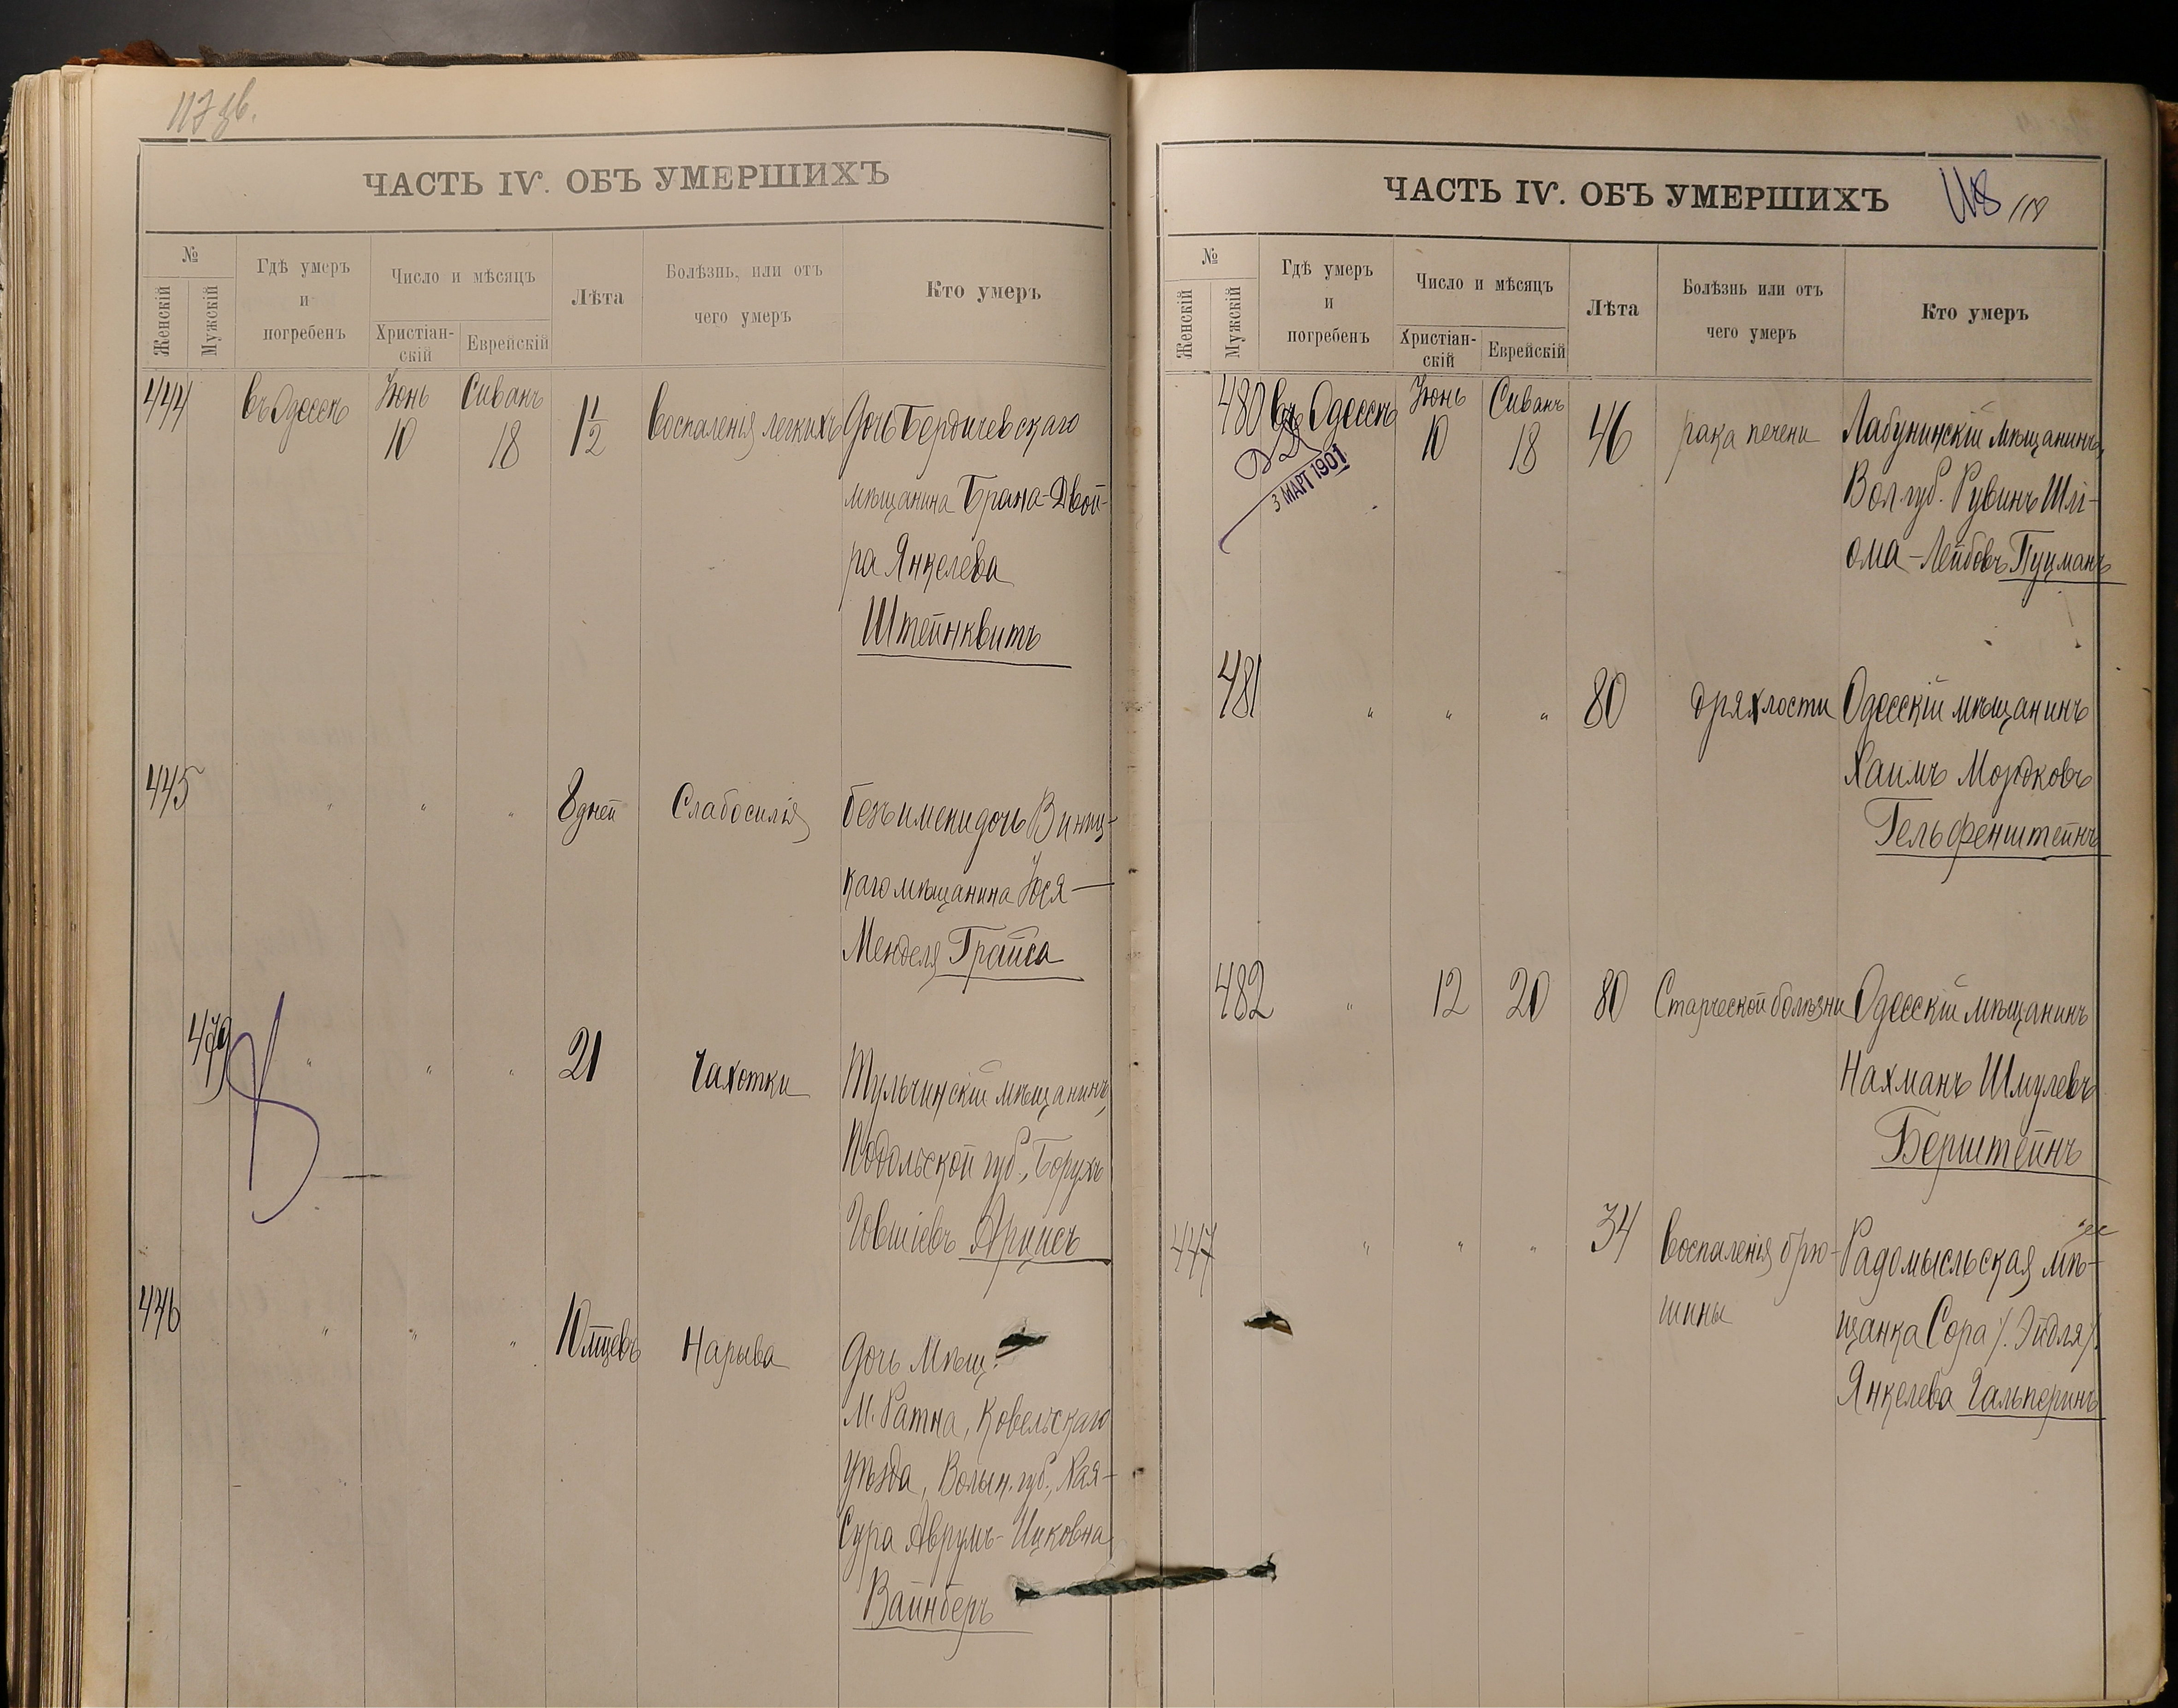 117 зв.
ЧАСТЬ IV. ОБЪ УМЕРШИХЪ
№
Женскій
Мужскій
Гдѣ умеръ
и
погребенъ
Число и мѣсяцъ
Христіан-
скій
Еврейскій
Лѣта
Болѣзнь, или отъ
чего умеръ
Кто умеръ
444 въ Одессѣ Іюнь 10 Сиванъ 18 1 1/2 воспаленія легкихъ Дочь Бердичевскаго
мѣщанина Брана-Двой-
ра Янкелева
Штейнквитъ
445 " " " 8 дней Слабосилія безъ имени дочь Винни-
каго мѣщанина Іося-
Менделя Грайса
479 " " " 21 Чахотки Тульчинскій мѣщанинъ,
Подольской губ., Борухъ
Іовшіевъ
446 " " " 10 мцевъ Нарыва Дочь Мѣщ.
М. Ратна, Ковельскаго
уѣзда, Волын. губ., Хая-
Сура Аврумъ-Ицковна
Вайнберъ
ЧАСТЬ IV. ОБЪ УМЕРШИХЪ
118 118
№
Женскій
Мужскій
Гдѣ умеръ
и
погребенъ
Число и мѣсяцъ
Христіан-
скій
Еврейскій
Лѣта
Болѣзнь или отъ
чего умеръ
Кто умеръ
480 въ Одессѣ Іюнь 10 Сиванъ 18 46 рака печени Лабунинскій мѣщанинъ,
Вол губ. Рувинъ Шлі-
ома-Лейбовъ Пуцманъ
3 МАРТ 1901
481 " " " 80 дряхлости Одесскій мѣщанинъ
Хаимъ Мордковъ
Гельфенштейнъ
482 " 12 20 80 Старческой болѣзни Одесскій мѣщанинъ
Нахманъ Шмулевъ
Берштейнъ
447 " " " 34 воспаленія брю- Радомысльская мѣ-
шины щанка Сора /. Эйдля /.
Янкелева Гальперинъ